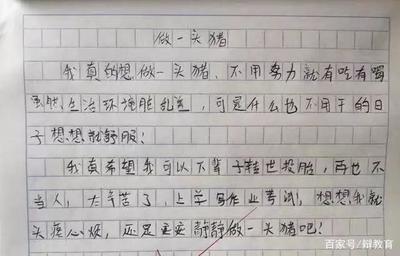 做一头猪
我真的想做一头猪,不用努力就有吃有喝
虽然生活环境脏乱差,可是什么也不用干的日
子想想就舒服!
我真希望我可以下辈子转世投胎,再也不
当人,太气苦了,上学写作业考试,想想我就
头疼心烦,还是安静静做一头猪吧!
百家号/辩教育